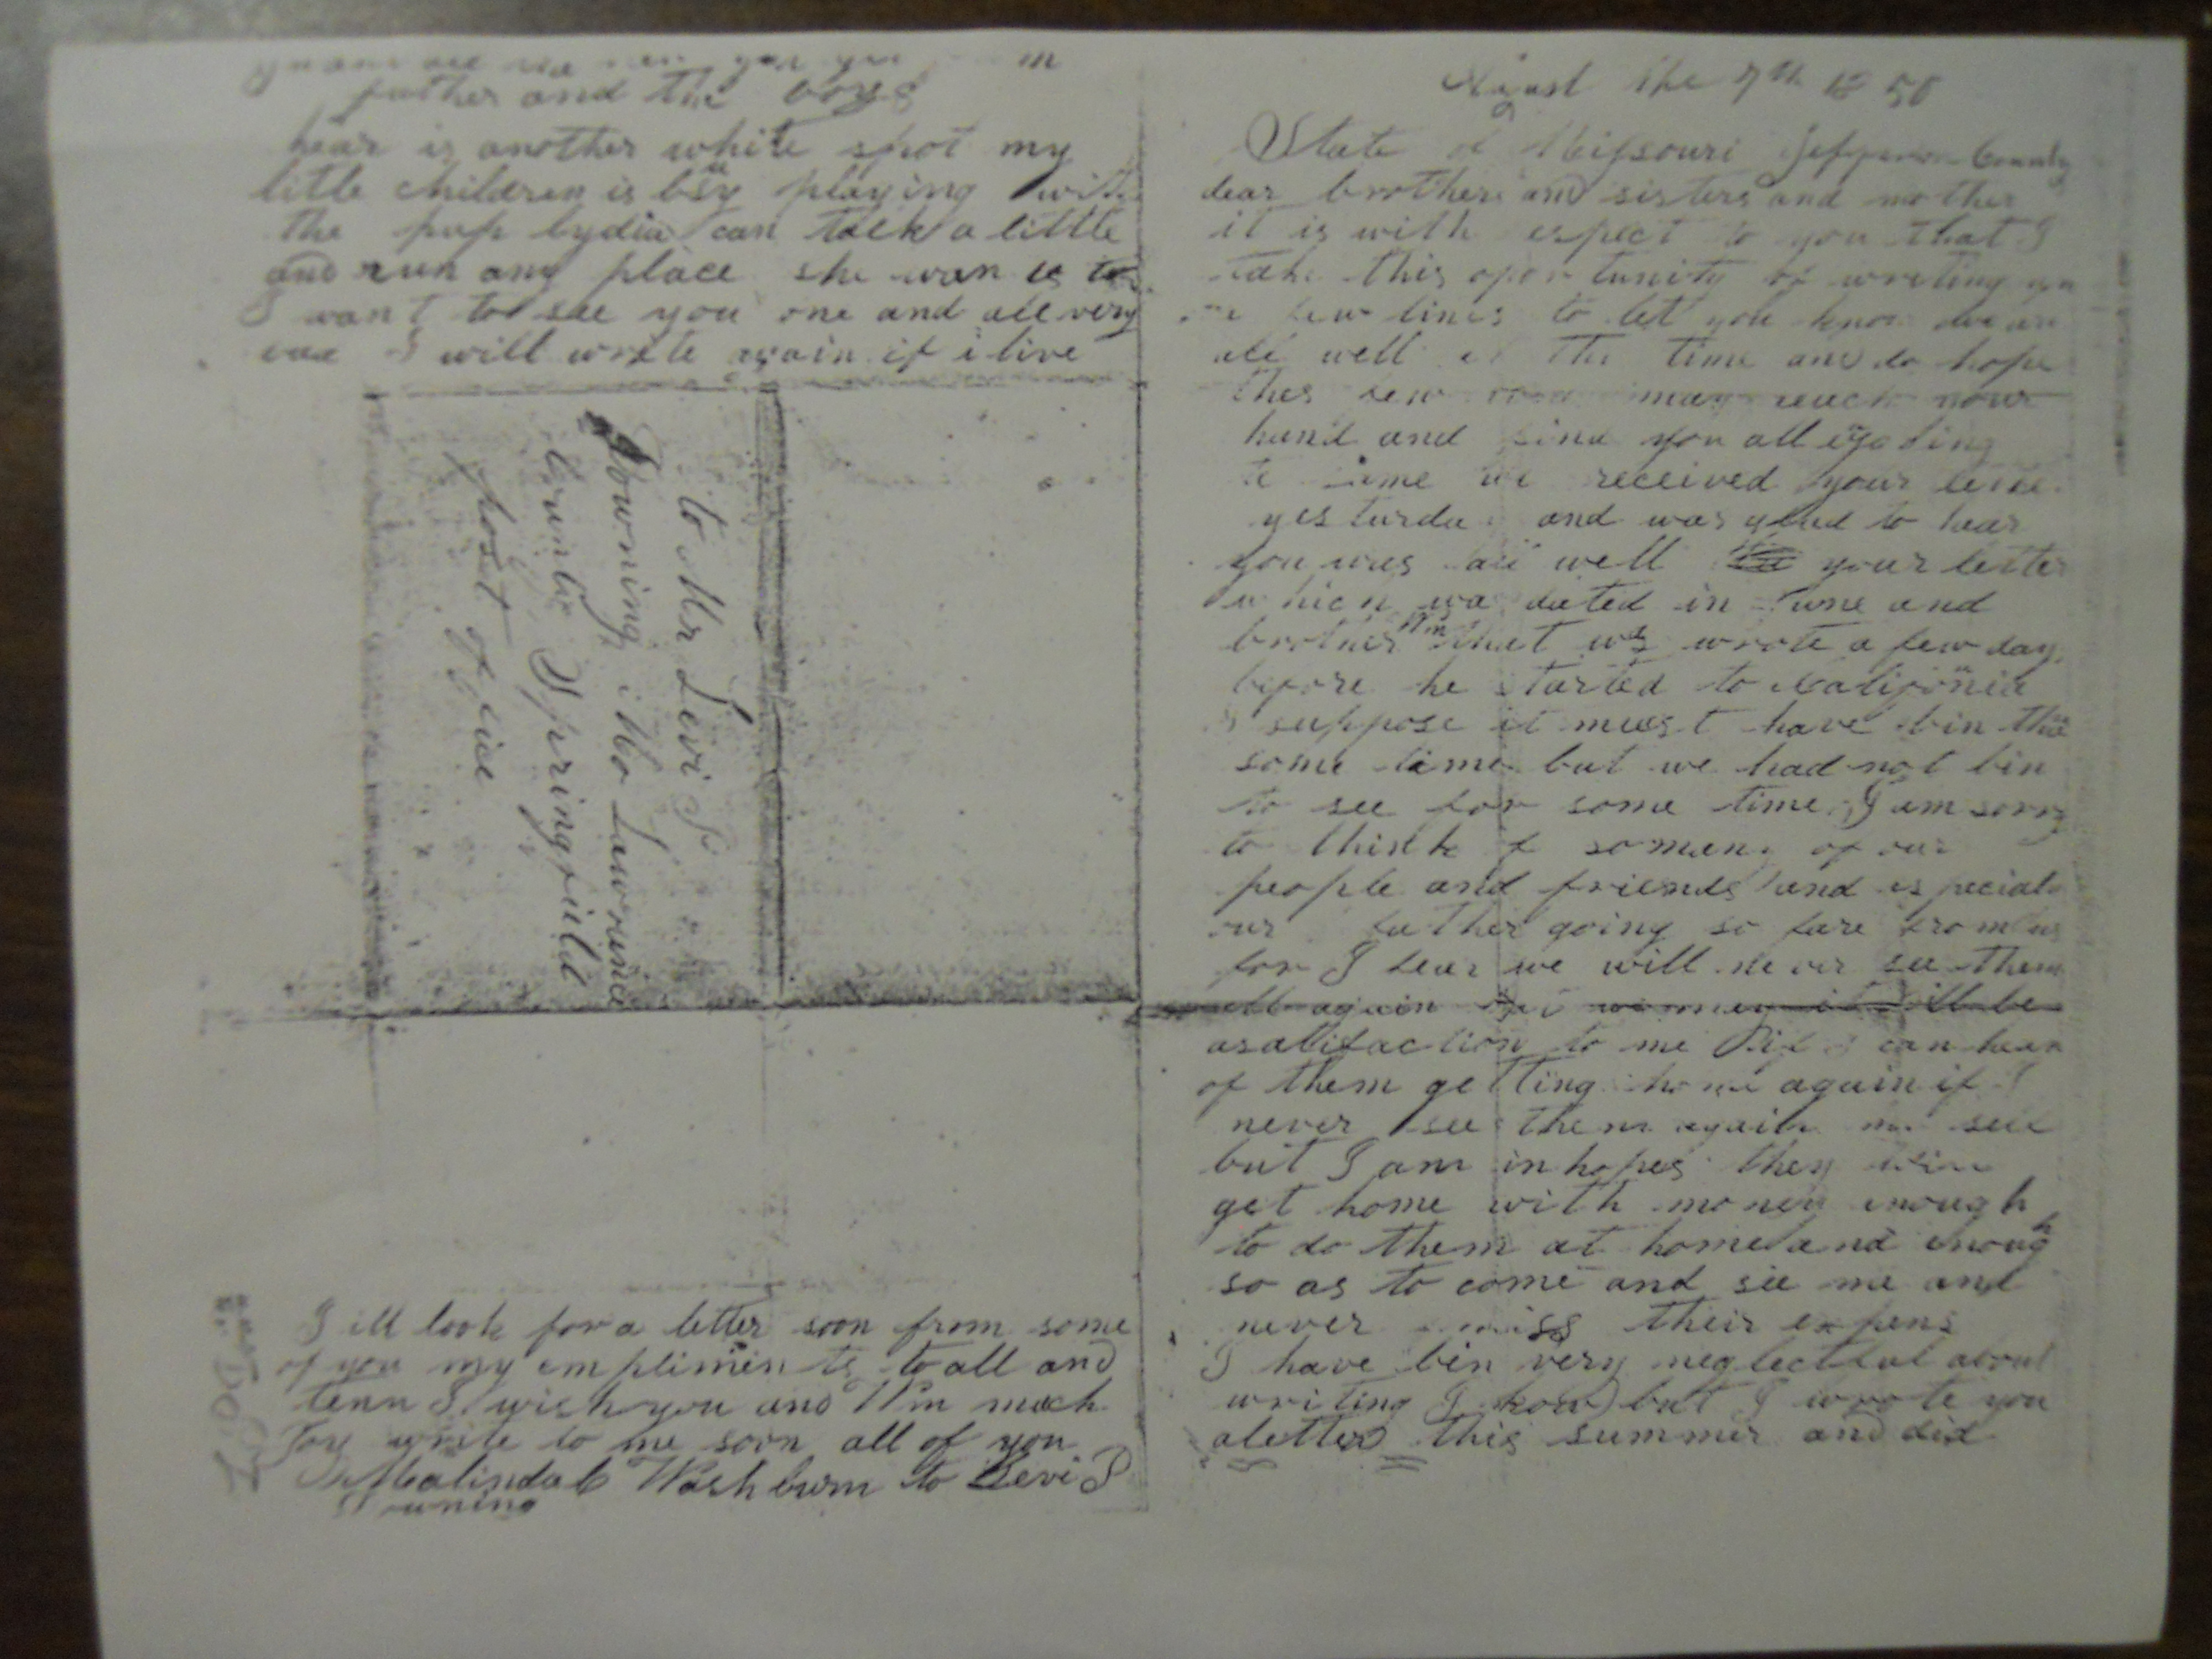 father and the boys
hear is another white spot my
litle children is bsy playing with
the pup lydia can talk a little
and run any place she wan ts to
I want to see you one and all very
I will write again if i live
to Mr Levi S
Downing Mo Lawrence
County Springfield
post office
I ill look for a letter soon from some
of you my compliments to all and
tenn I wish you and Wm much
Joy write to me soon all of you
Malinda C Washburn to Levi S
Downing
August the 7th 18 50
State of Missouri Jefferson County
dear brothers and sisters and mother
it is with espect to you that I
take this oportunity of writing you
a few lines to let you know we are
all well at the time and do hope
thes few may reach your
hand and find you all
same we received your letter
yesturday and was glad to hear
you was all well your letter
which was dated in June and
brother Wm that was wrote a few day
before he started to California
I suppose it must have bin thar
some time but we had not bin
to see for some time I am sorry
to think of so many of our
people and friends and especialy
our father going so fare from us
for I fear we will never see them
all again we may it will be
asatisfaction to me if I can hear
of them getting home again if I
never see them again
but I am in hopes they
get home with money enough
to do them at home and enough
so as to come and see me and
never miss their expens
I have bin very neglectful about
writing I know but I wrote you
aletter this summer and did